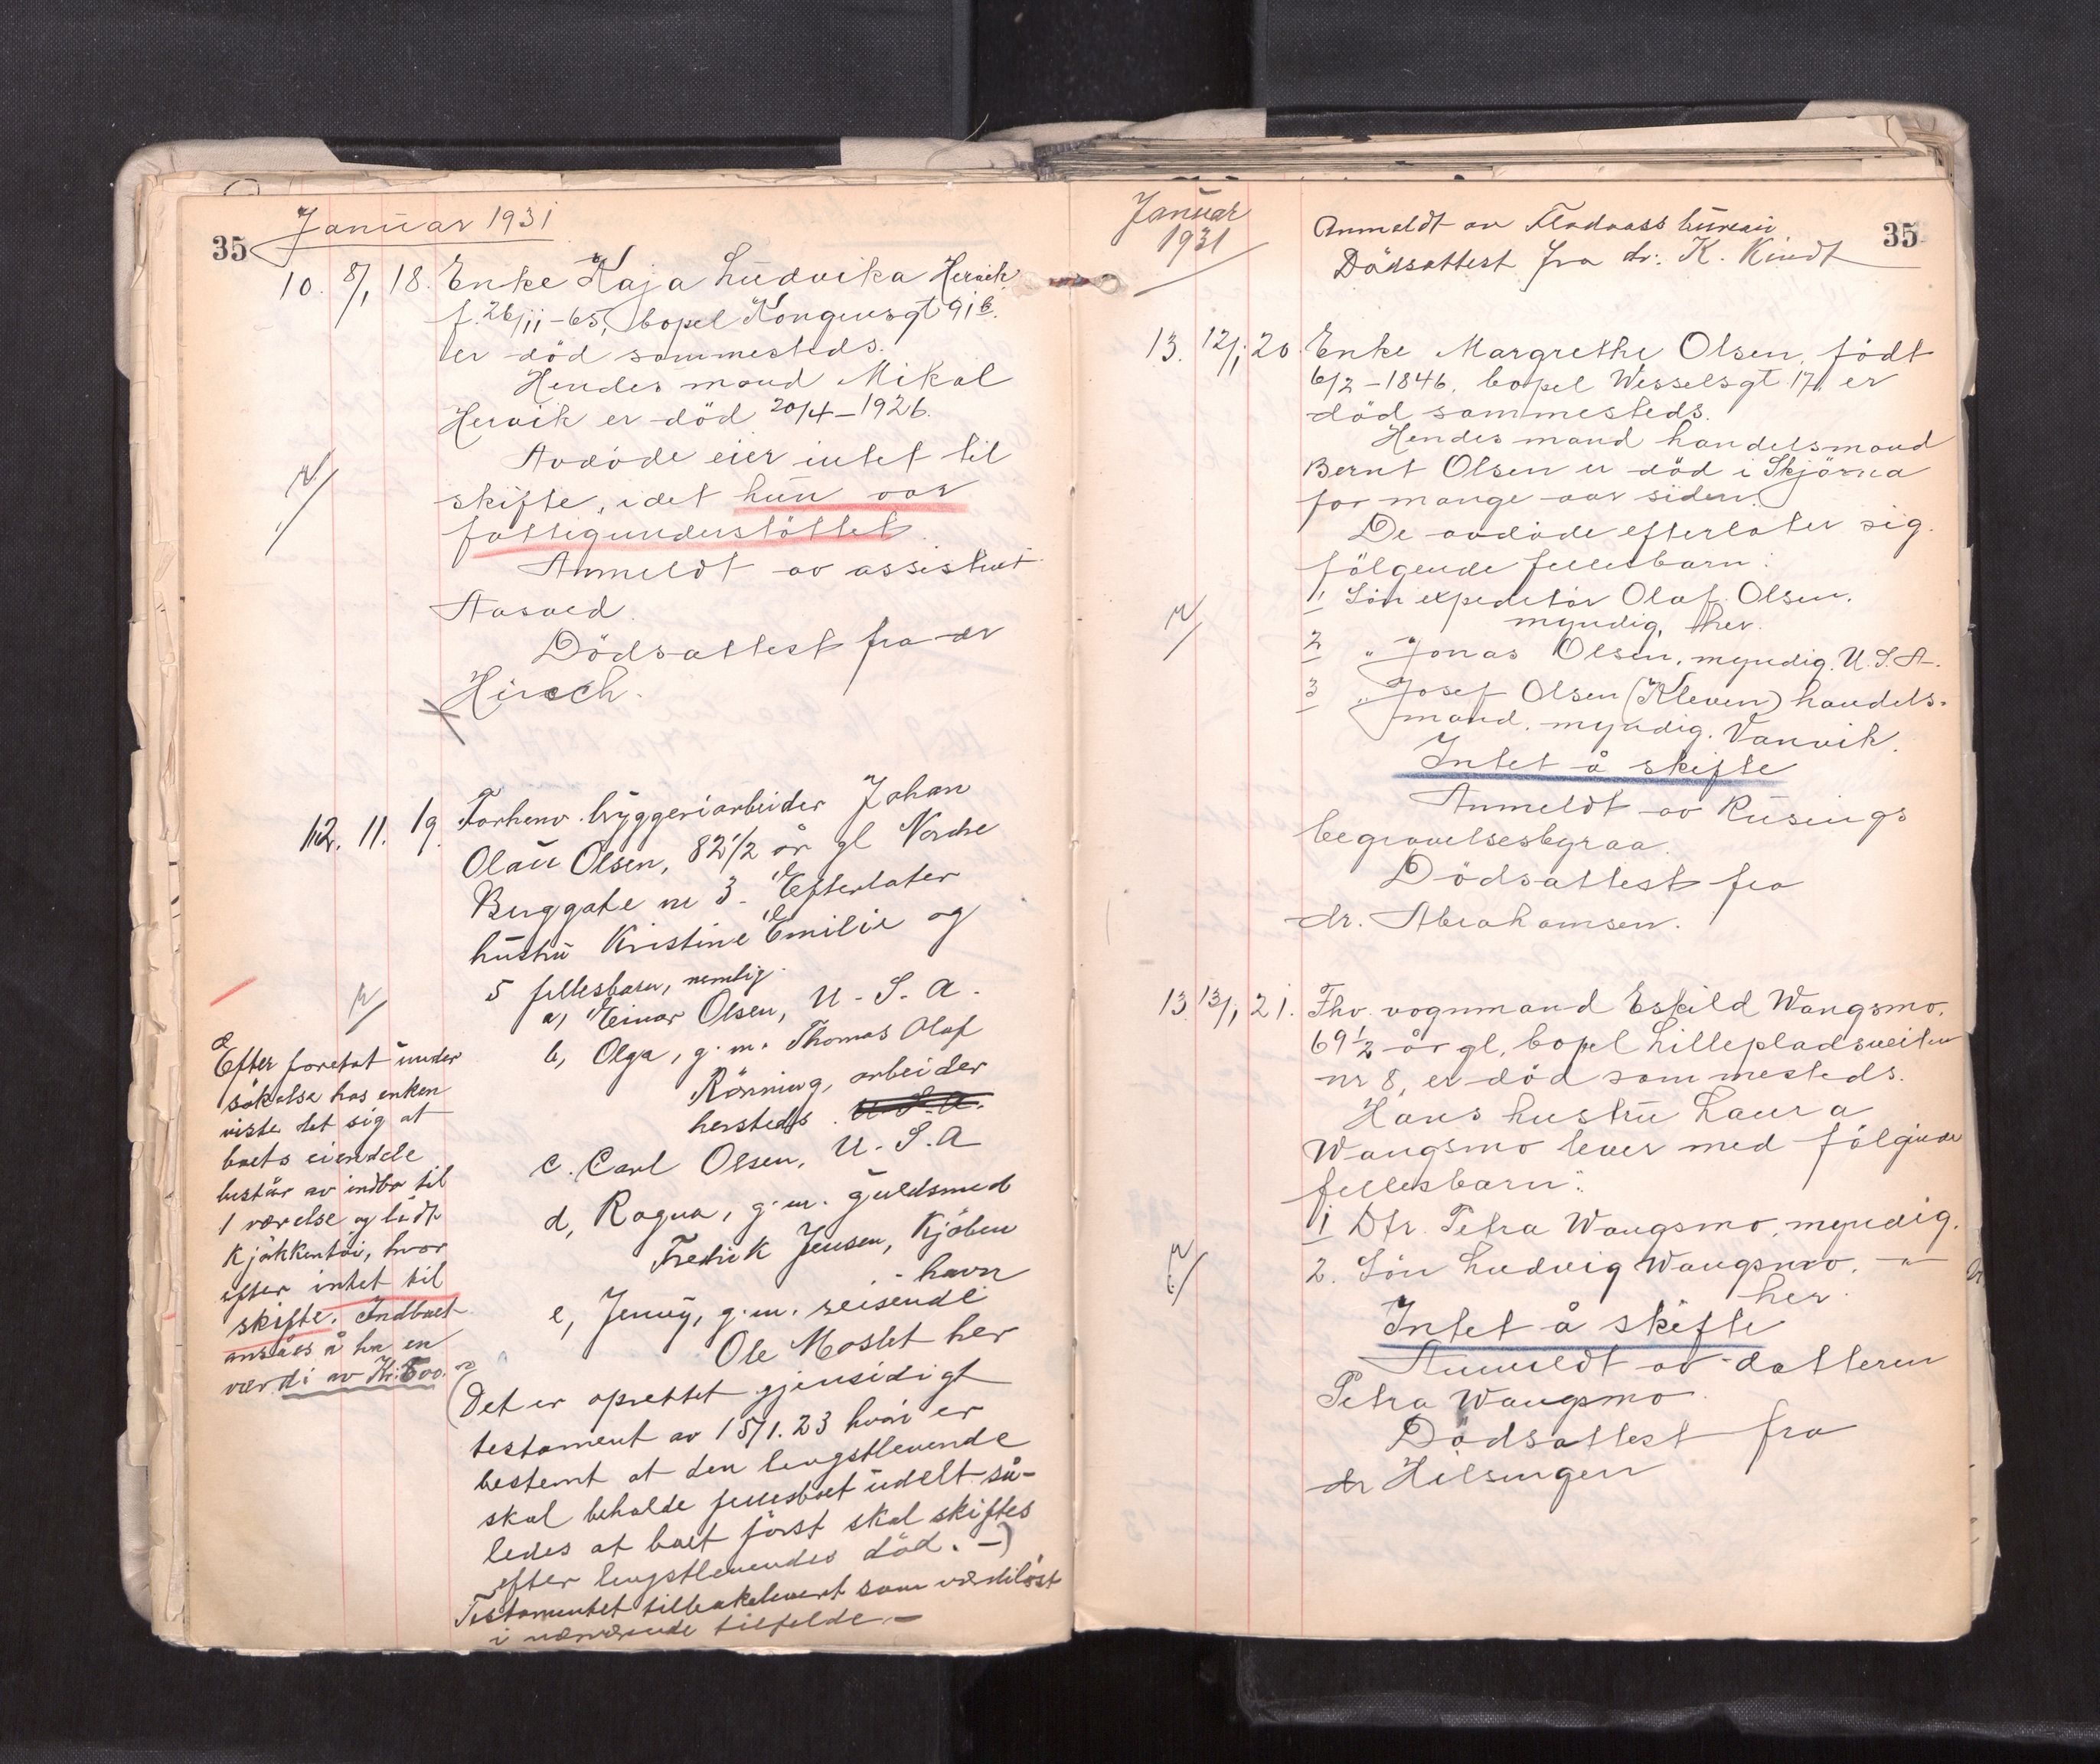 35
Januar 1931
10. 8/1 18. Enke Kaja Ludvika Hervik
f. 26/11-65, bopel Kongensgt 91b.
er död sammesteds.
Hendes mand Mikal
Hervik er död 20/4-1926.
Avdöde eier intet til
skifte, idet hun var
fattigunderstöttet.
Anmeldt av assistent
Aasved.
Dödsattest fra dr
Hirsch.
12. 11. 19. Forhenv. bryggeriarbeider Johan
Olau Olsen, 82 1/2 år gl Nordre
Berggate nr 3. Efterlater
hustru Kristine Emilie og
5 fellesbarn, nemlig.
a, Einar Olsen, U.S.A.
b, Olga, g.m. Thomas Olaf
Rönning, arbeider
hersteds. U.S.A.
c. Carl Olsen, U.S.A
d, Ragna, g.m. guldsmed
Fredrik Jensen, Kjöben
-havn
e, Jenny, g.m. reisende
Ole Moslet her
(Det er oprettet gjensidigt
testament av 15/1.23 hvori er
bestemt at den lengstlevende
skal beholde fellesboet udelt så-
ledes at boet först skal skiftes
efter lengstlevendes död. -)
Testamentet tilbakelevert som værdilöst
i nærværende tilfelde -
Efter foretat under
sökelse hos enken
viste det sig at
boets eiendele
består av indbo til
1 værelse og lidt
Kjökkentöi, hvor
efter intet til
skifte. Indboet
ansåes å ha en
værdi av Kr. 500.
Januar
1931
35
Anmeldt av Flodaass bureau
Dödsattest fra dr. K. Kindt
13. 12/1 20. Enke Margrethe Olsen, födt
6/2-1846, bopel Wesselsgt. 17, er
död sammesteds.
Hendes mand handelsmand
Bernt Olsen er död i Skjörna
for mange aar siden.
De avdöde efterlater sig
fölgende fellesbarn:
1 Sön expeditör Olaf Olsen.
myndig, her.
2 " Jonas Olsen, myndig. U.S.A.
3 " Josef Olsen (Kleven) handels-
mand, myndig. Vanvik.
Intet å skifte
Anmeldt av Rusings
begravelsesbyraa.
Dödsattest fra
dr. Abrahamsen.
13 13/1 21. Fhv. vognmand Eskild Wangsmo,
69 1/2 år gl, bopel Lillepladsveiten
nr 8, er död sammesteds.
Hans hustru Laura
Wangsmo lever med fölgende
fellesbarn:
1 Dtr. Petra Wangsmo, myndig.
2. Sön Ludvig Wangsmo, - " -
her.
Intet å skifte
Anmeldt av datteren
Petra Wangsmo.
Dödsattest fra
dr Helsingen